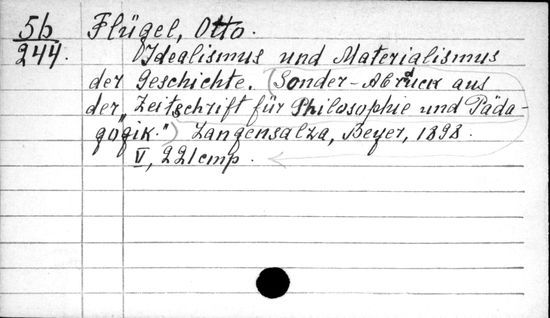 5b
244.
Flügel, Otto.
Idealismus und Materialismus
der Geschichte. (Sonder-Abdruck aus
der „Zeitschrift für Philosophie und Päda-
gogik.") Langensalza, Beyer, 1898.
V, 221 cmp.